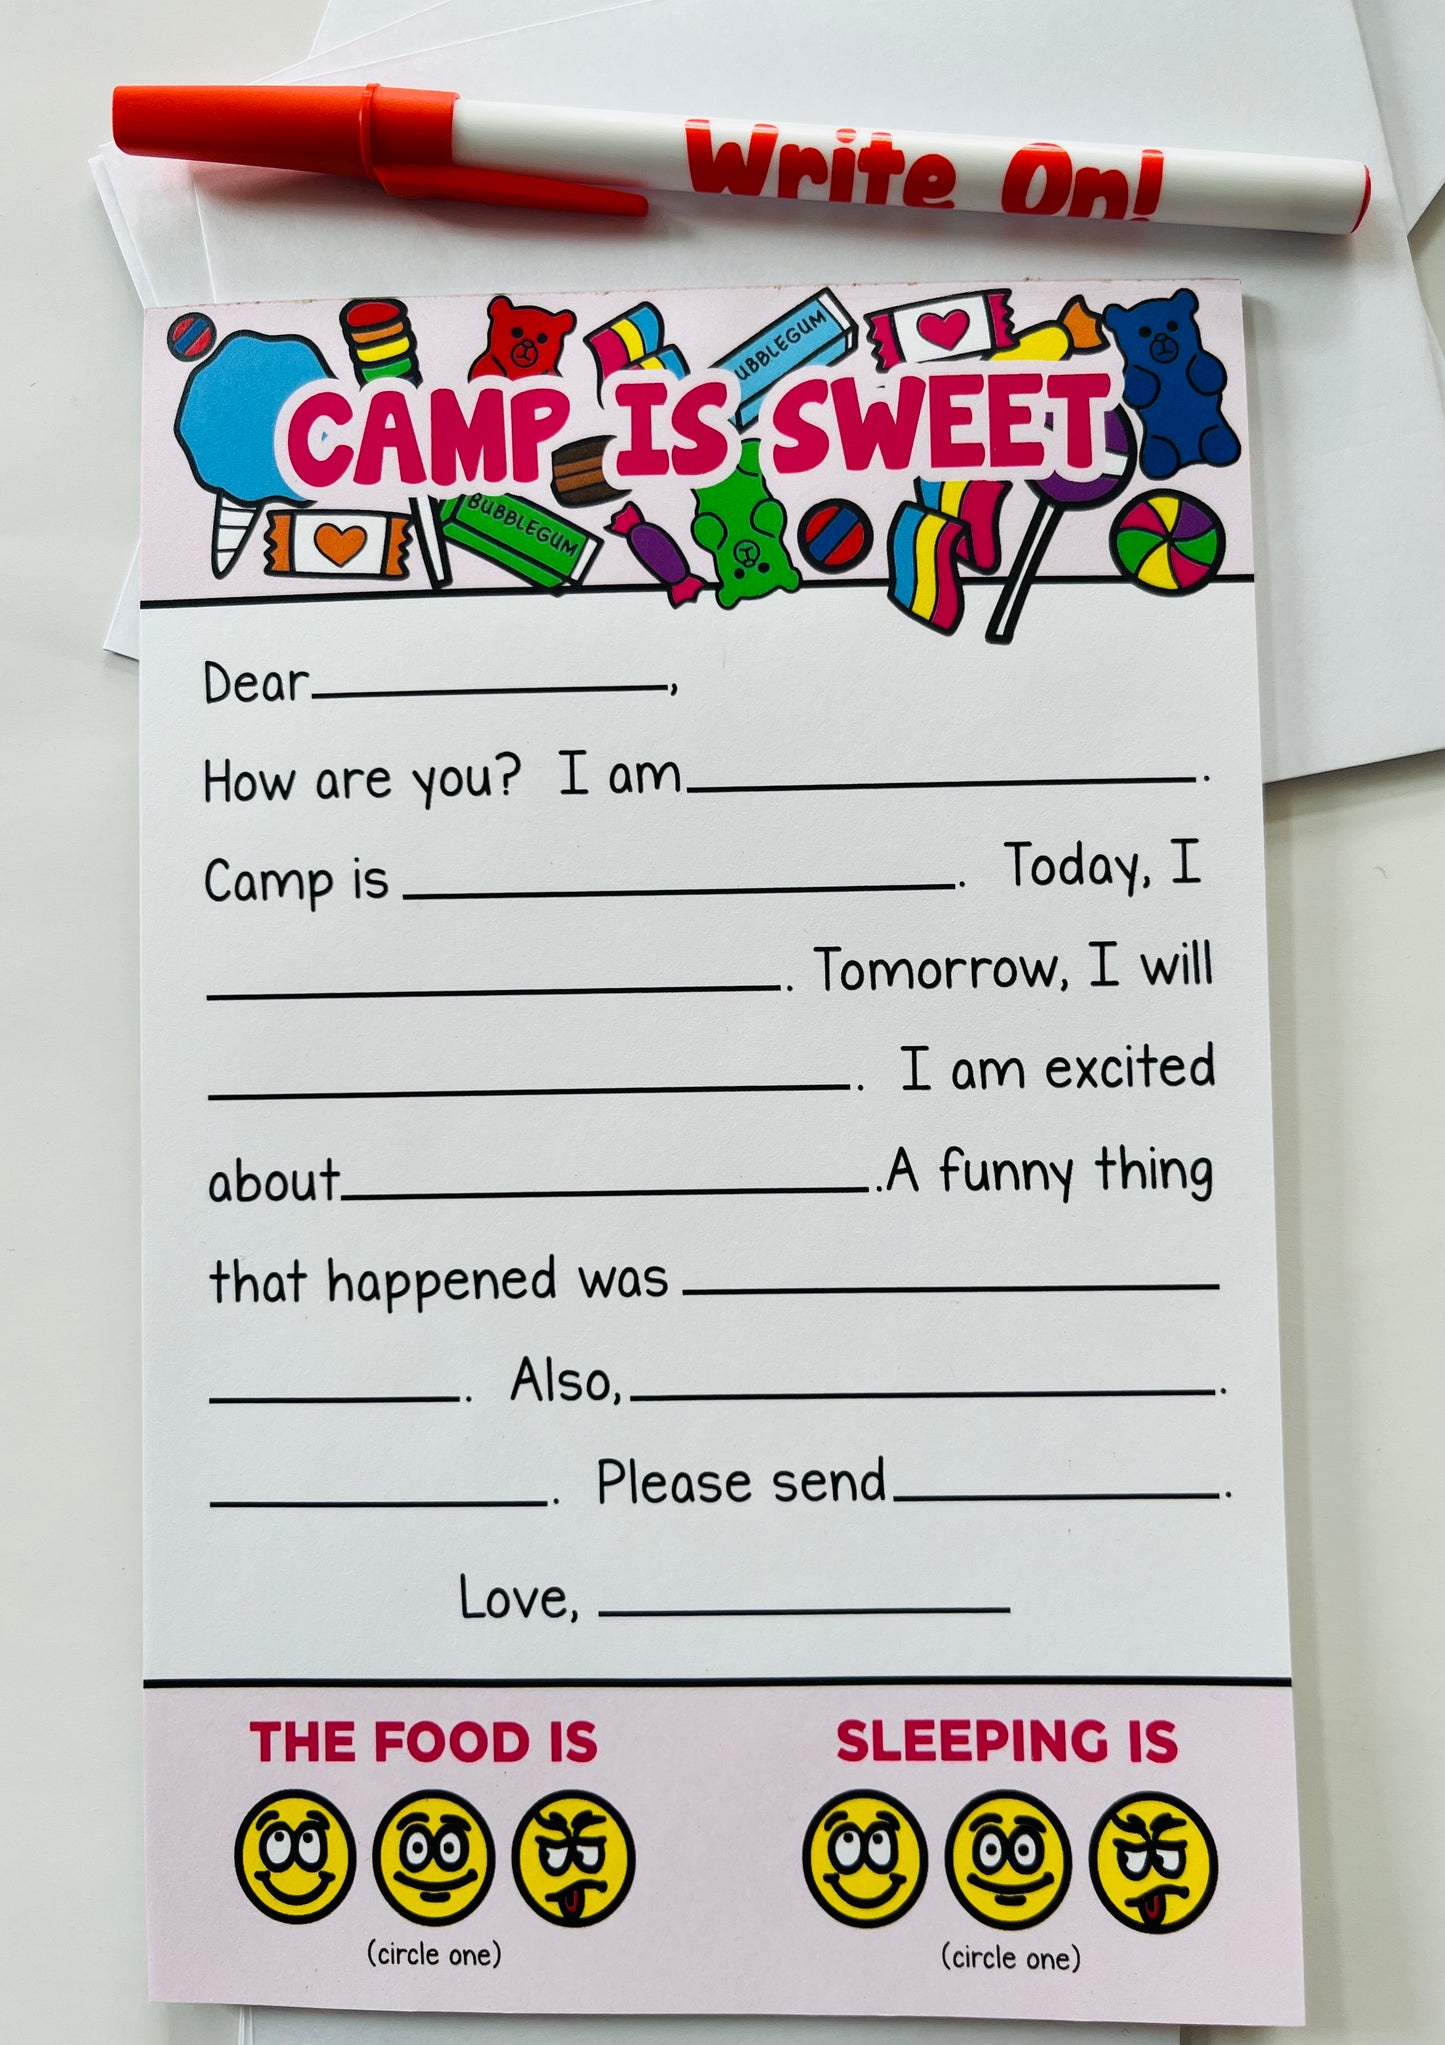 Write On!
UBBLEGUM
CAMP IS SWEET
BUBBLEGUM
Dear__________,
How are you? I am__________.
Camp is __________. Today, I
__________. Tomorrow, I will
__________. I am excited
about__________.A funny thing
that happened was __________
__________. Also,__________.
__________. Please send__________.
Love, __________
THE FOOD IS
SLEEPING IS
(circle one)
(circle one)